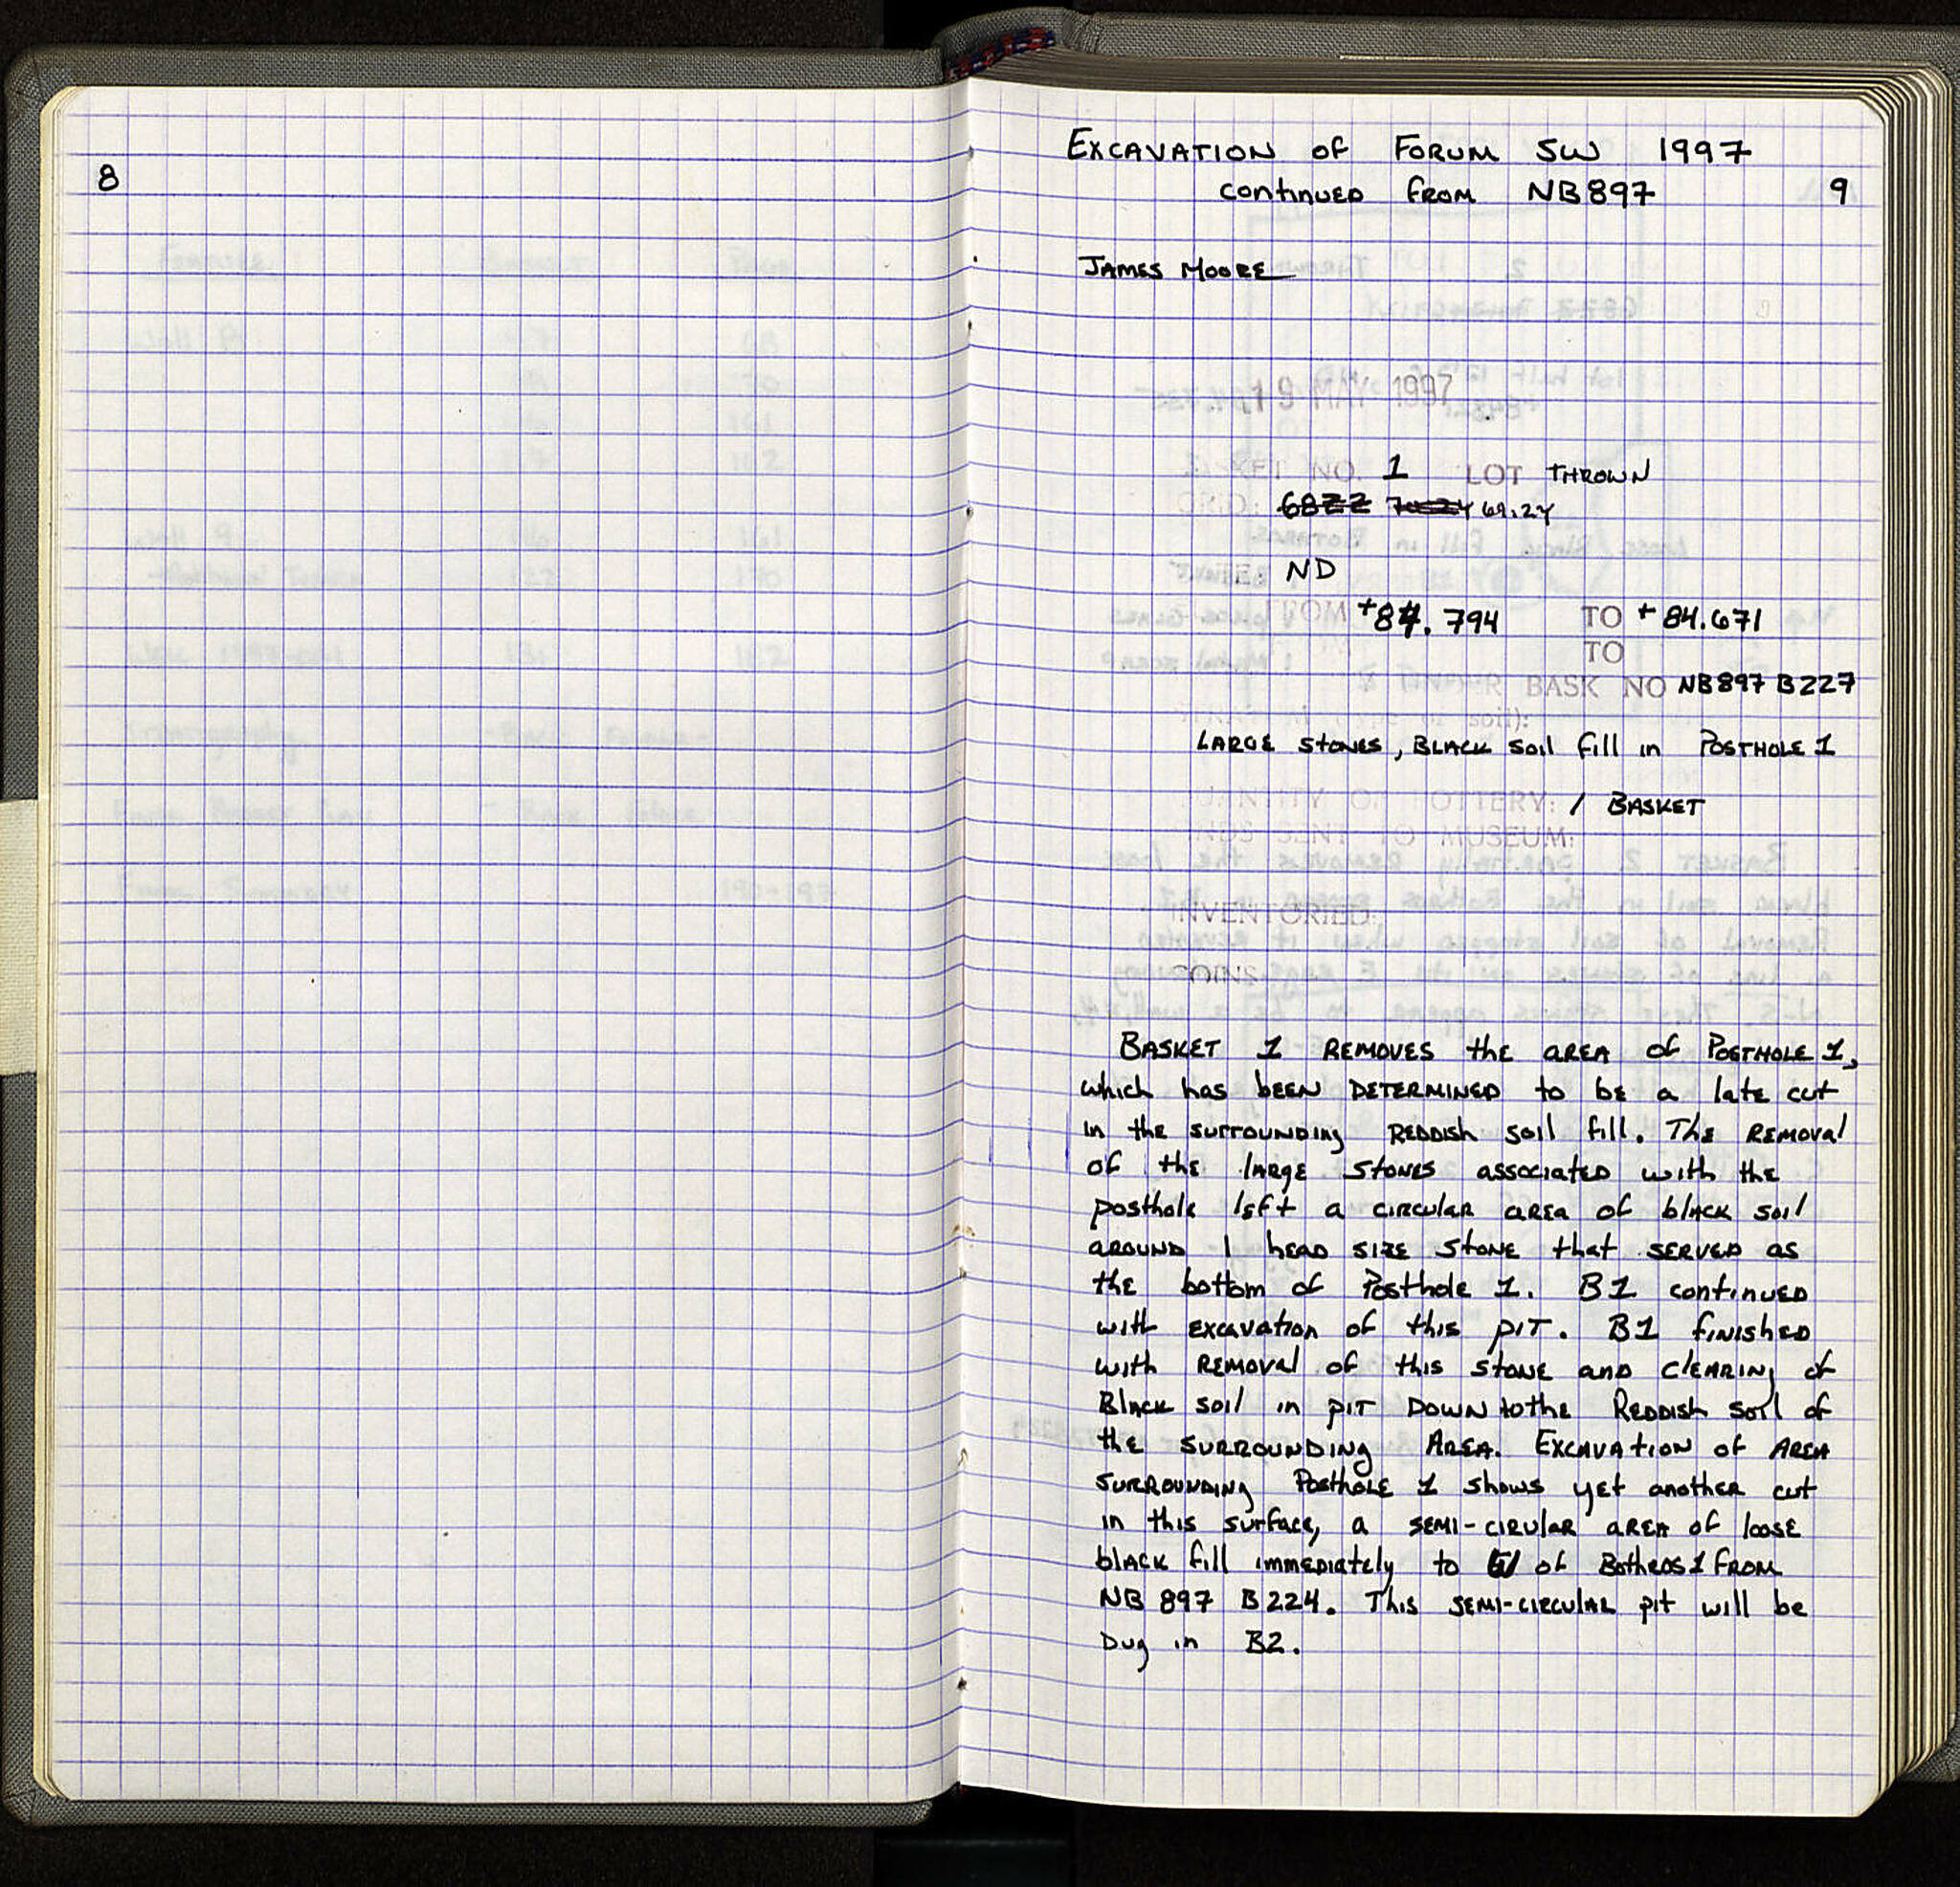 8
EXCAVATION of FORUM SW 1997
continued from NB897 9
JAMES MOORE
19 MAY 1997
BASKET NO. 1 LOT THROWN
GRID: 68ZZ 69.24
ND
FROM +84.794 TO +84.671
TO
UNDER BASK NO NB897 B227
soil):
LARGE STONES, BLACK soil fill in POSTHOLE 1
QUANTITY OF POTTERY: / BASKET
FINDS SENT TO MUSEUM:
INVENTORIED:
COINS:
BASKET 1 REMOVES the AREA of POSTHOLE 1,
which has been DETERMINED to be a late cut
in the surrounding REDDISH soil fill. The REMOVAL
of the large STONES associated with the
posthole left a circular area of black soil
around 1 head size stone that served as
the bottom of Posthole 1. B1 continued
with excavation of this pit. B1 finished
with REMOVAL of this STONE and clearing of
Black soil in pit DOWN to the Reddish soil of
the surrounding AREA. Excavation of AREA
surrounding Posthole 1 shows yet another cut
in this surface, a semi-cirular area of loose
black fill immediately to of Bothros 1 from
NB 897 B224. This semi-circular pit will be
Dug in B2.